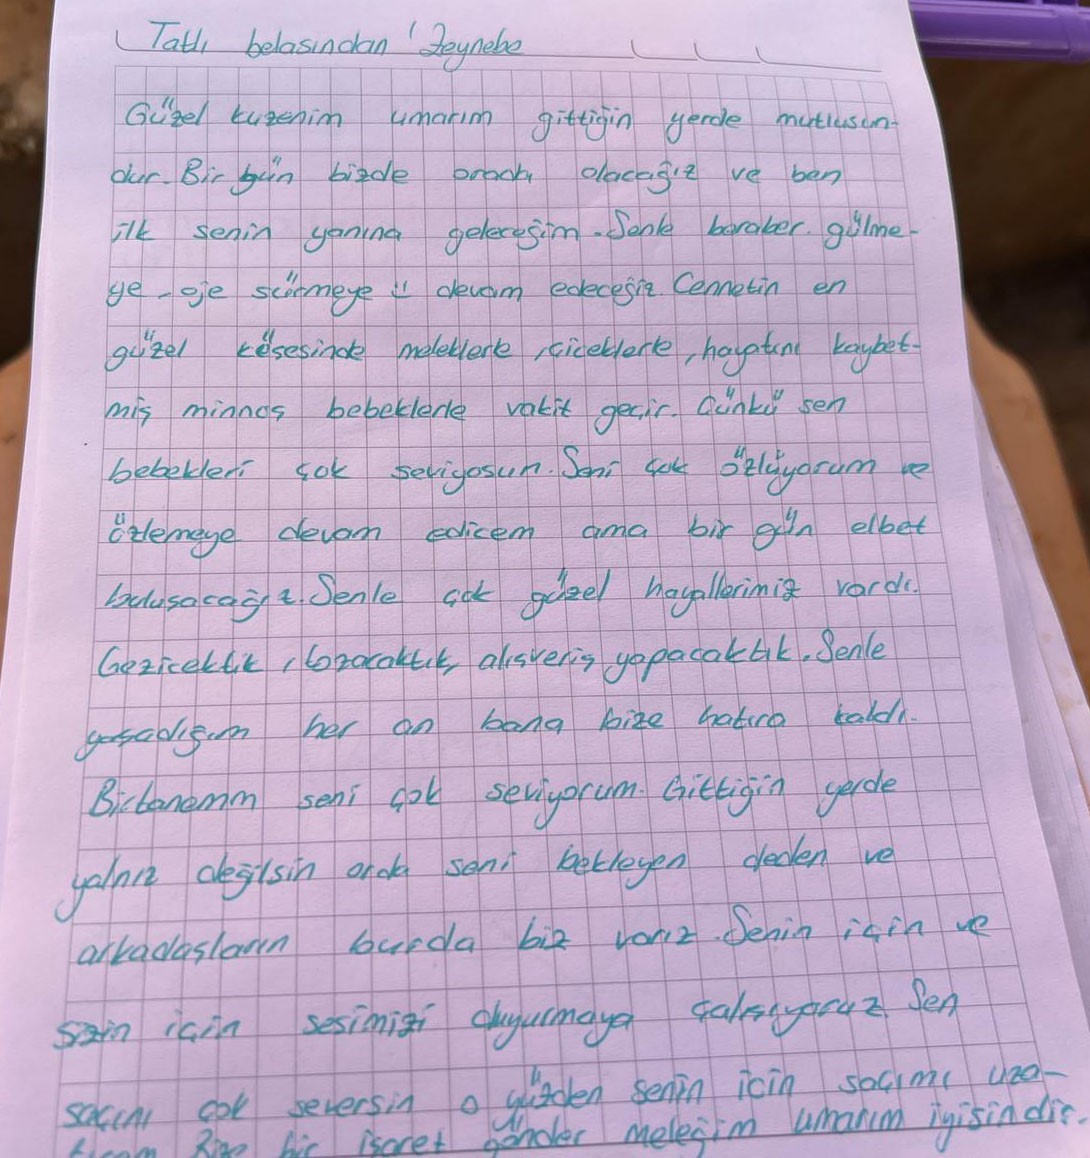 Tatlı belasından Zeynebe
Güzel kuzenim umarım gittiğin yerde mutlusun-
dur. Bir gün bizde orada olacağız ve ben
ilk senin yanına geleceğim. Senle beraber gülme-
ye, oje sürmeye devam edeceğiz. Cennetin en
güzel köşesinde meleklerle, çiceklerle, hayatını kaybet-
miş minnos bebeklerle vakit geçir. Çünkü sen
bebekleri çok seviyosun. Seni çok özlüyorum ve
özlemeye devam edicem ama bir gün elbet
bulusacağız. Senle çok güzel hayallerimiz vardı.
Gezicektik, tozacaktık, alısveriş yapacaktık. Senle
yasadığım her an bana bize hatıra kaldı.
Bictanemm seni çok seviyorum. Gittiğin yerde
yalnız değilsin orda seni bekleyen deden ve
arkadasların burda biz varız. Senin için ve
sizin için sesimizi duyurmaya çalısıyoruz. Sen
saçını çok seversin o yüzden senin icin saçımı uza-
bir isaret gönder meleğim umarım iyisindir.